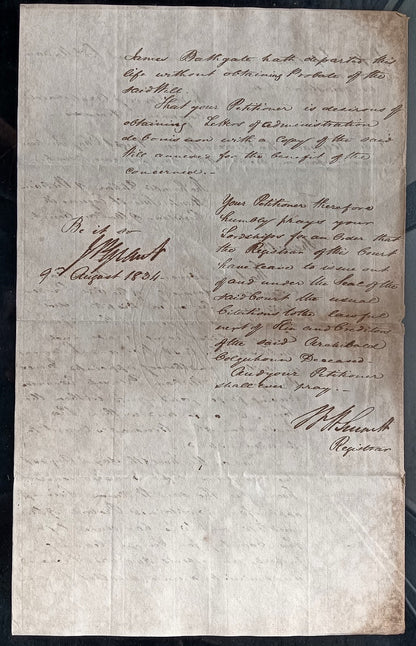 James Bathgate hath departed this
life without obtaining Probate of the
said Will.
That your Petitioner is desirous of
obtaining Letters of administration
de bonis non with a copy of the said
Will annexed for the benefit of the
concerned.—
Your Petitioner therefore
humbly prays your
Lordships for an Order that
the Registrar of the Court
have leave to issue out
of and under the Seal of the
said Court the usual
Citations to the lawful
next of Kin and Creditors
of the said Archibald
Colquhoun Deceased
And your Petitioner
shall ever pray.—
Registrar
Be it so
9th August 1834